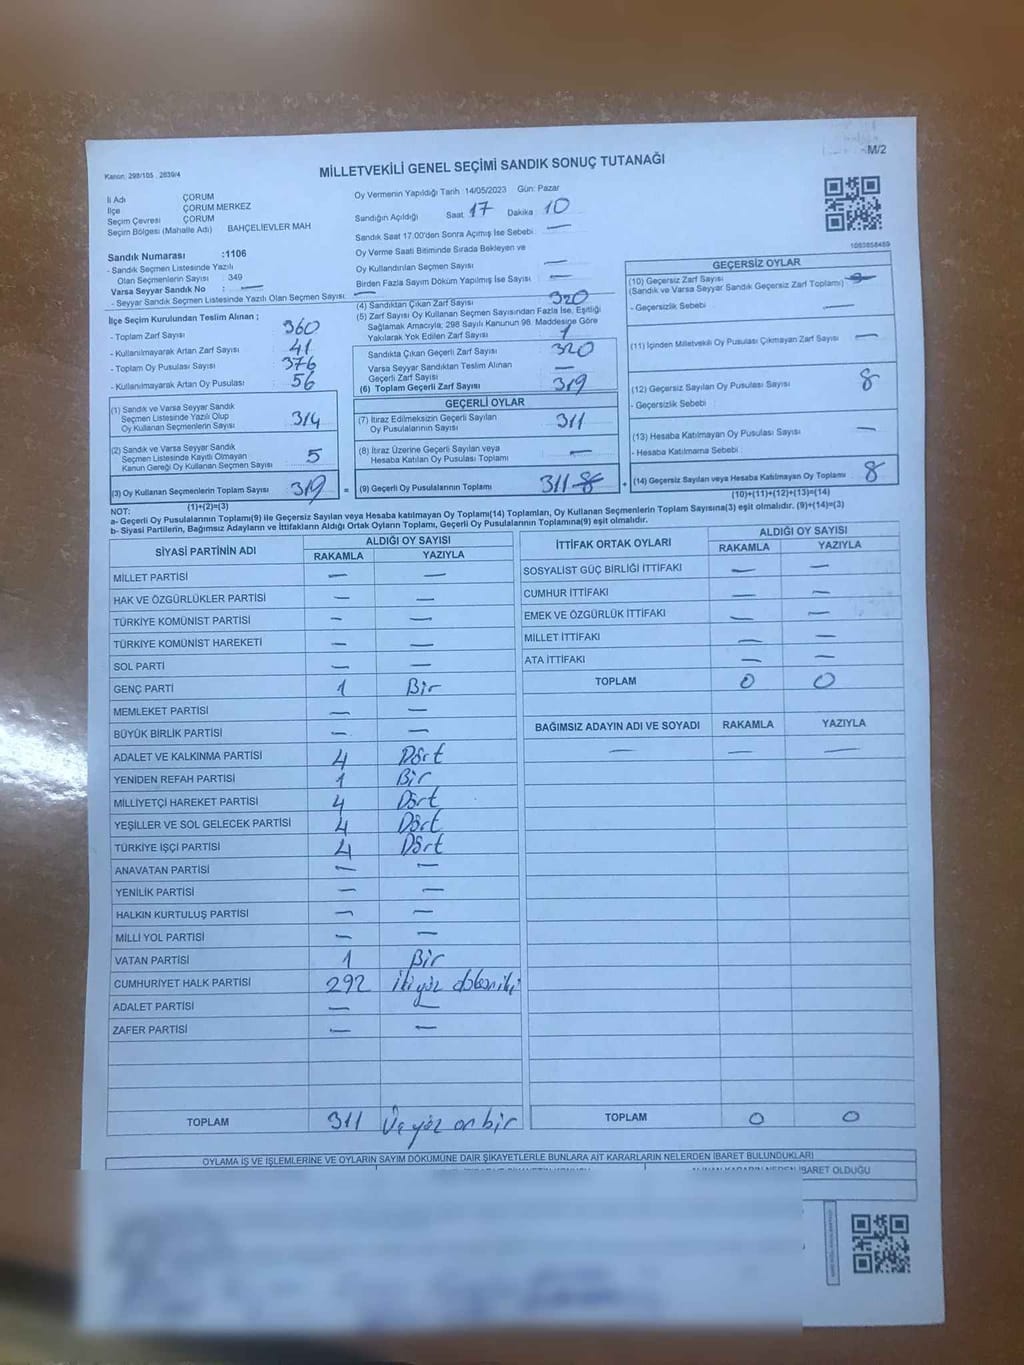 M/2
Kanon: 298/105 , 2839/4
MİLLETVEKİLİ GENEL SEÇİMİ SANDIK SONUÇ TUTANAĞI
İli Adı ÇORUM
İlçe ÇORUM MERKEZ
Seçim Çevresi ÇORUM
Seçim Bölgesi (Mahalle Adı) BAHÇELİEVLER MAH
Oy Vermenin Yapıldığı Tarih 14/05/2023 Gün: Pazar
Sandığın Açıldığı Saat 17 Dakika 10
Sandık Saat 17.00'den Sonra Açımış İse Sebebi —
Oy Verme Saati Bitiminde Sırada Bekleyen ve
Oy Kullandırılan Seçmen Sayısı —
Birden Fazla Sayım Döküm Yapılmış İse Sayısı —
Sandık Numarası :1106
- Sandık Seçmen Listesinde Yazılı
Olan Seçmenlerin Sayısı : 349
Varsa Seyyar Sandık No : —
- Seyyar Sandık Seçmen Listesinde Yazılı Olan Seçmen Sayısı: —
İlçe Seçim Kurulundan Teslim Alınan ;
- Toplam Zarf Sayısı 360
- Kullanılmayarak Artan Zarf Sayısı 41
- Toplam Oy Pusulası Sayısı 376
- Kullanılmayarak Artan Oy Pusulası 56
(1) Sandık ve Varsa Seyyar Sandık
Seçmen Listesinde Yazılı Olup
Oy Kullanan Seçmenlerin Sayısı 314
(2) Sandık ve Varsa Seyyar Sandık
Seçmen Listesinde Kayıtlı Olmayan
Kanun Gereği Oy Kullanan Seçmen Sayısı 5
(3) Oy Kullanan Seçmenlerin Toplam Sayısı 319
(1)+(2)=(3)
(4) Sandıktan Çıkan Zarf Sayısı 320
(5) Zarf Sayısı Oy Kullanan Seçmen Sayısından Fazla İse, Eşitliği
Sağlamak Amacıyla; 298 Sayılı Kanunun 98. Maddesine Göre
Yakılarak Yok Edilen Zarf Sayısı 1
Sandıkta Çıkan Geçerli Zarf Sayısı 320
Varsa Seyyar Sandıktan Teslim Alınan
Geçerli Zarf Sayısı —
(6) Toplam Geçerli Zarf Sayısı 319
GEÇERLİ OYLAR
(7) İtiraz Edilmeksizin Geçerli Sayılan
Oy Pusulalarının Sayısı 311
(8) İtiraz Üzerine Geçerli Sayılan veya
Hesaba Katılan Oy Pusulası Toplamı —
= (9) Geçerli Oy Pusulalarının Toplamı 311
1083858489
GEÇERSİZ OYLAR
(10) Geçersiz Zarf Sayısı
(Sandık ve Varsa Seyyar Sandık Geçersiz Zarf Toplamı)
- Geçersizlik Sebebi —
(11) İçinden Milletvekili Oy Pusulası Çıkmayan Zarf Sayısı —
(12) Geçersiz Sayılan Oy Pusulası Sayısı 8
- Geçersizlik Sebebi
(13) Hesaba Katılmayan Oy Pusulası Sayısı —
- Hesaba Katılmama Sebebi
+ (14) Geçersiz Sayılan veya Hesaba Katılmayan Oy Toplamı 8
(10)+(11)+(12)+(13)=(14)
NOT:
a- Geçerli Oy Pusulalarının Toplamı(9) ile Geçersiz Sayılan veya Hesaba katılmayan Oy Toplamı(14) Toplamları, Oy Kullanan Seçmenlerin Toplam Sayısına(3) eşit olmalıdır. (9)+(14)=(3)
b- Siyasi Partilerin, Bağımsız Adayların ve İttifakların Aldığı Ortak Oyların Toplamı, Geçerli Oy Pusulalarının Toplamına(9) eşit olmalıdır.
SİYASİ PARTİNİN ADI ALDIĞI OY SAYISI
RAKAMLA YAZIYLA
MİLLET PARTİSİ — —
HAK VE ÖZGÜRLÜKLER PARTİSİ — —
TÜRKİYE KOMÜNİST PARTİSİ — —
TÜRKİYE KOMÜNİST HAREKETİ — —
SOL PARTİ — —
GENÇ PARTİ 1 Bir
MEMLEKET PARTİSİ — —
BÜYÜK BİRLİK PARTİSİ — —
ADALET VE KALKINMA PARTİSİ 4 Dört
YENİDEN REFAH PARTİSİ 1 Bir
MİLLİYETÇİ HAREKET PARTİSİ 4 Dört
YEŞİLLER VE SOL GELECEK PARTİSİ 4 Dört
TÜRKİYE İŞÇİ PARTİSİ 4 Dört
ANAVATAN PARTİSİ — —
YENİLİK PARTİSİ — —
HALKIN KURTULUŞ PARTİSİ — —
MİLLİ YOL PARTİSİ — —
VATAN PARTİSİ 1 Bir
CUMHURİYET HALK PARTİSİ 292 İkiyüz doksaniki
ADALET PARTİSİ — —
ZAFER PARTİSİ — —
TOPLAM 311 Üçyüz on bir
İTTİFAK ORTAK OYLARI ALDIĞI OY SAYISI
RAKAMLA YAZIYLA
SOSYALİST GÜÇ BİRLİĞİ İTTİFAKI — —
CUMHUR İTTİFAKI — —
EMEK VE ÖZGÜRLÜK İTTİFAKI — —
MİLLET İTTİFAKI — —
ATA İTTİFAKI — —
TOPLAM 0 0
BAĞIMSIZ ADAYIN ADI VE SOYADI RAKAMLA YAZIYLA
— — —
TOPLAM 0 0
OYLAMA İŞ VE İŞLEMLERİNE VE OYLARIN SAYIM DÖKÜMÜNE DAİR ŞİKAYETLERLE BUNLARA AİT KARARLARIN NELERDEN İBARET BULUNDUKLARI
İBARET OLDUĞU